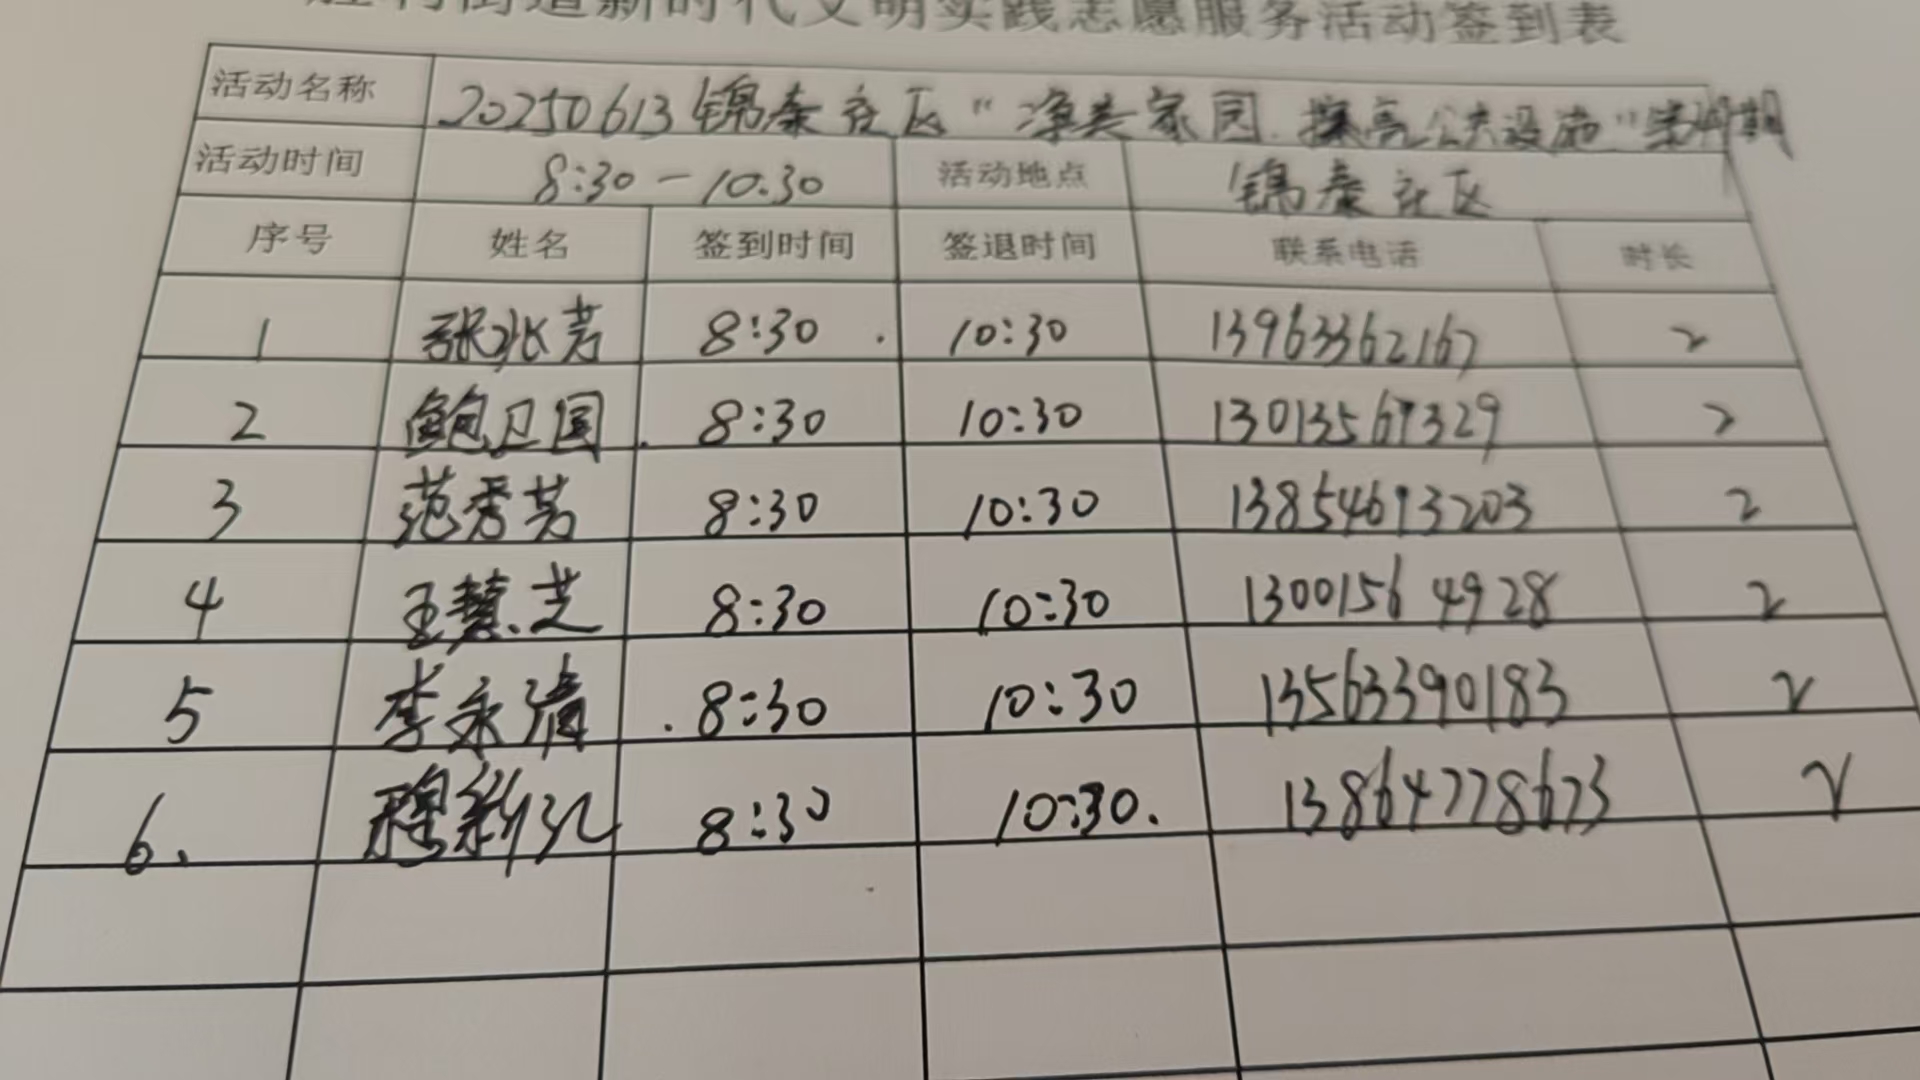 胜利街道新时代文明实践志愿服务活动签到表
活动名称 20250613锦泰社区“净美家园 擦亮公共设施”
活动时间 8:30-10.30 活动地点 锦泰社区
序号 姓名 签到时间 签退时间 联系电话 时长
1 张冰芳 8:30 10:30 13963362167 2
2 鲍卫国 8:30 10:30 13013567329 2
3 范秀芳 8:30 10:30 13854693203 2
4 王慧芝 8:30 10:30 13001564928 2
5 李永清 8:30 10:30 13563390183 2
6. 程新 8:30 10:30. 13864778673 2